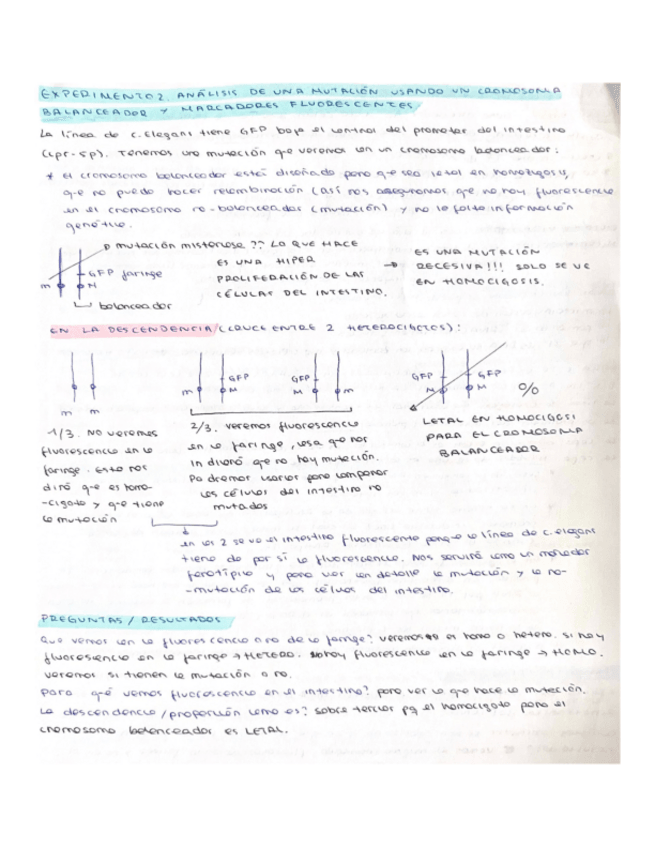 EXPERIMENTO 2. ANÁLISIS DE UNA MUTACIÓN USANDO UN CROMOSOMA
BALANCEADOR Y MARCADORES FLUORESCENTES
La línea de c. Elegans tiene GFP bajo el control del promotor del intestino
(cpr-5p). Tenemos una mutación que veremos con un cromosoma balanceador:
* El cromosoma balanceador está diseñado para que sea letal en homocigosis,
que no pueda hacer recombinación (así nos aseguramos que no hay fluorescencia
en el cromosoma no-balanceador (mutación) y no le falta información
genética.
mutación misteriosa ?? LO QUE HACE
ES UNA HIPER
PROLIFERACIÓN DE LAS
CÉLULAS DEL INTESTINO.
→ ES UNA MUTACIÓN
RECESIVA!!! SOLO SE VE
EN HOMOCIGOSIS.
GFP faringe
m M
balanceador
EN LA DESCENDENCIA (CRUCE ENTRE 2 HETEROCIGOTOS):
m m
m GFP M
GFP M m
GFP M GFP M %
1/3. NO veremos
fluorescencia en la
faringe. esto nos
dirá que es homo-
-cigoto y que tiene
la mutación
2/3. veremos fluorescencia
en la faringe, cosa que nos
indicará que no hay mutación.
Podremos usarlos para comparar
las células del intestino no
mutadas
LETAL EN HOMOCIGOSI
PARA EL CROMOSOMA
BALANCEADOR
en los 2 se ve el intestino fluorescente porque la línea de c. elegans
tiene de por sí la fluorescencia. Nos servirá como un marcador
fenotípico y para ver con detalle la mutación y la no-
-mutación de las células del intestino.
PREGUNTAS / RESULTADOS
Que vemos con la fluorescencia o no de la faringe? veremos si es homo o hetero. si hay
fluorescencia en la faringe → HETERO. No hay fluorescencia en la faringe → HOMO.
veremos si tienen la mutación o no.
para qué vemos fluorescencia en el intestino? para ver lo que hace la mutación.
La descendencia/proporción como es? sobre tercios pq el homocigoto para el
cromosoma balanceador es LETAL.